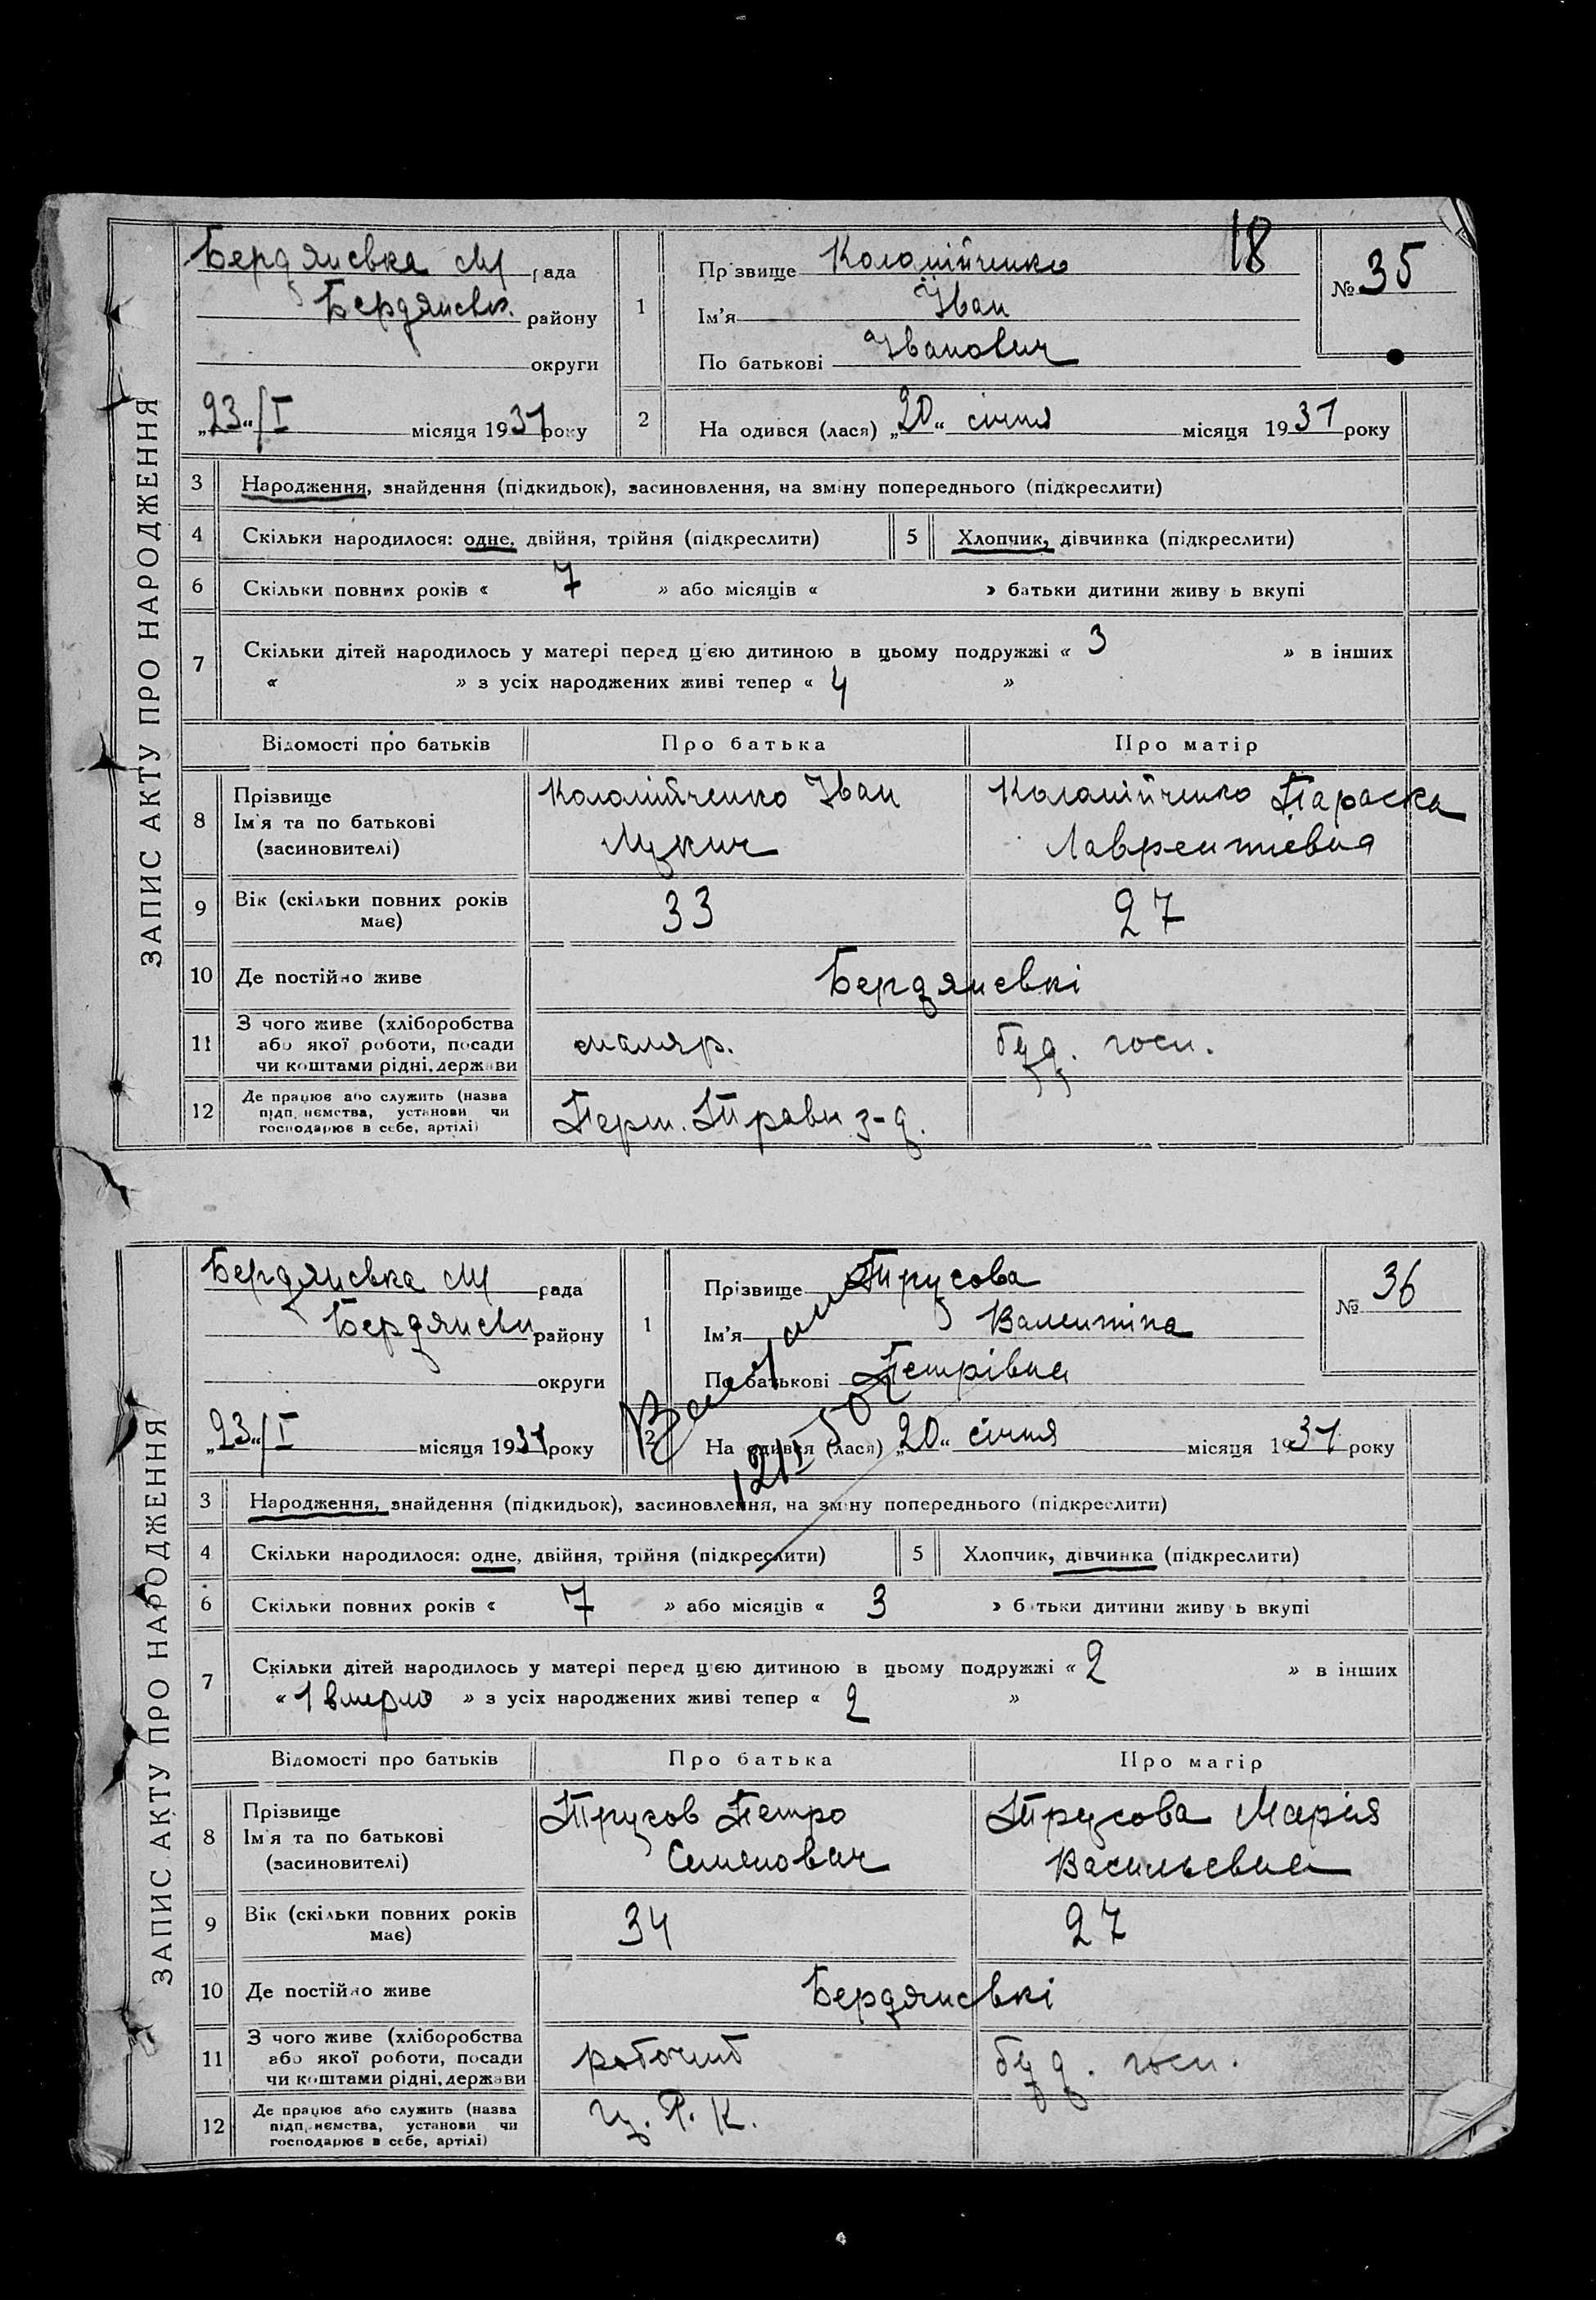 18
ЗАПИС АКТУ ПРО НАРОДЖЕННЯ
Бердянська м рада
Бердянськ. району
округи
„23“/I місяця 1931 року
1
Прізвище Коломійченко
Ім'я Іван
По батькові Іванович
№ 35
2 На одився (лася) „20“ січня місяця 1931 року
3 Народження, знайдення (підкидьок), засиновлення, на зміну попереднього (підкреслити)
4 Скільки народилося: одне, двійня, трійня (підкреслити)
5 Хлопчик, дівчинка (підкреслити)
6 Скільки повних років « 7 » або місяців « » батьки дитини живу ь вкупі
7 Скільки дітей народилось у матері перед цією дитиною в цьому подружжі « 3 » в інших
« » з усіх народжених живі тепер « 4 »
Відомості про батьків Про батька Про матір
8 Прізвище
Ім'я та по батькові
(засиновителі)
Коломійченко Іван
Лукич
Коломійченко Параска
Лаврентієвна
9 Вік (скільки повних років
має)
33 27
10 Де постійно живе Бердянські
11 З чого живе (хліборобства
або якої роботи, посади
чи коштами рідні, держави
маляр. буд. госп.
12 Де працює або служить (назва
підп иємства, установи чи
господарює в себе, артілі)
Перш. Травн з-д.
ЗАПИС АКТУ ПРО НАРОДЖЕННЯ
Бердянська м рада
Бердянськ району
округи
„23“/I місяця 1931 року
1
Прізвище Трусова
Ім'я Валентіна
По батькові Петрівна
№ 36
2 На одився (лася) „20“ січня місяця 1931 року
3 Народження, знайдення (підкидьок), засиновлення, на зміну попереднього (підкреслити)
4 Скільки народилося: одне, двійня, трійня (підкреслити)
5 Хлопчик, дівчинка (підкреслити)
6 Скільки повних років « 7 » або місяців « 3 » б тьки дитини живу ь вкупі
7 Скільки дітей народилось у матері перед цією дитиною в цьому подружжі « 2 » в інших
« 1 вмерло » з усіх народжених живі тепер « 2 »
Відомості про батьків Про батька Про матір
8 Прізвище
Ім'я та по батькові
(засиновителі)
Трусов Петро
Семенович
Трусова Марія
Васильевна
9 Вік (скільки повних років
має)
34 27
10 Де постійно живе Бердянські
11 З чого живе (хліборобства
або якої роботи, посади
чи коштами рідні, держави
робочий буд. госп.
12 Де працює або служить (назва
підп иємства, установи чи
господарює в себе, артілі)
Ц. Р. К.